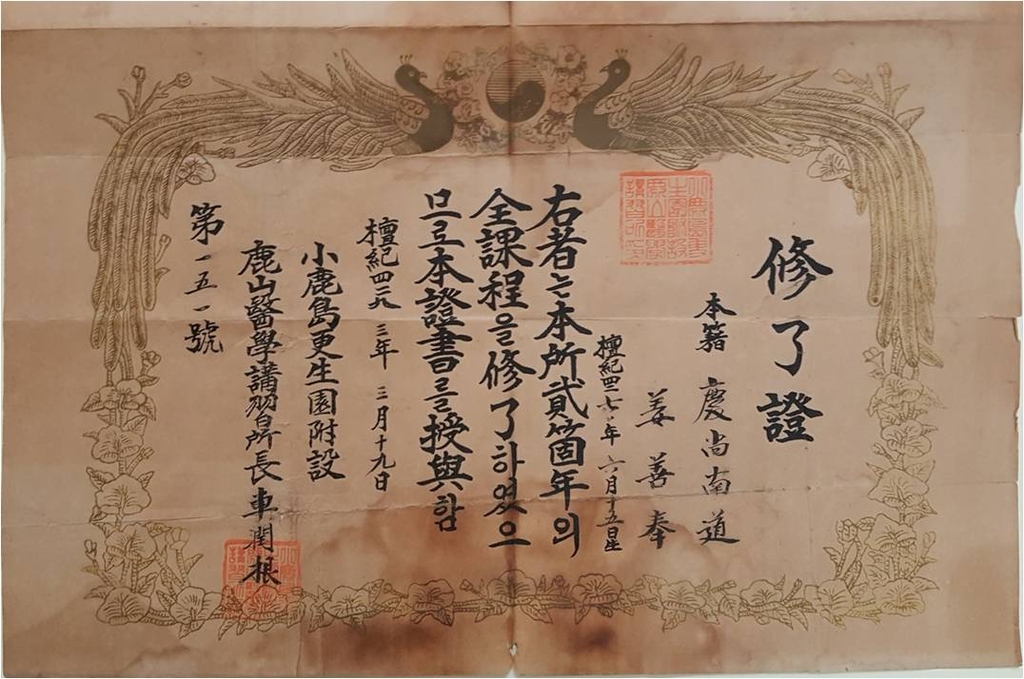 修了證
本籍 慶尚南道
姜善奉
檀紀 六月十五日生
右者는本所貳箇年의
全課程을修了하였으
므로本證書를授與함
檀紀四二九三年 三月十九日
小鹿島更生園附設
鹿山醫學講習所長車潤根
第一五一號